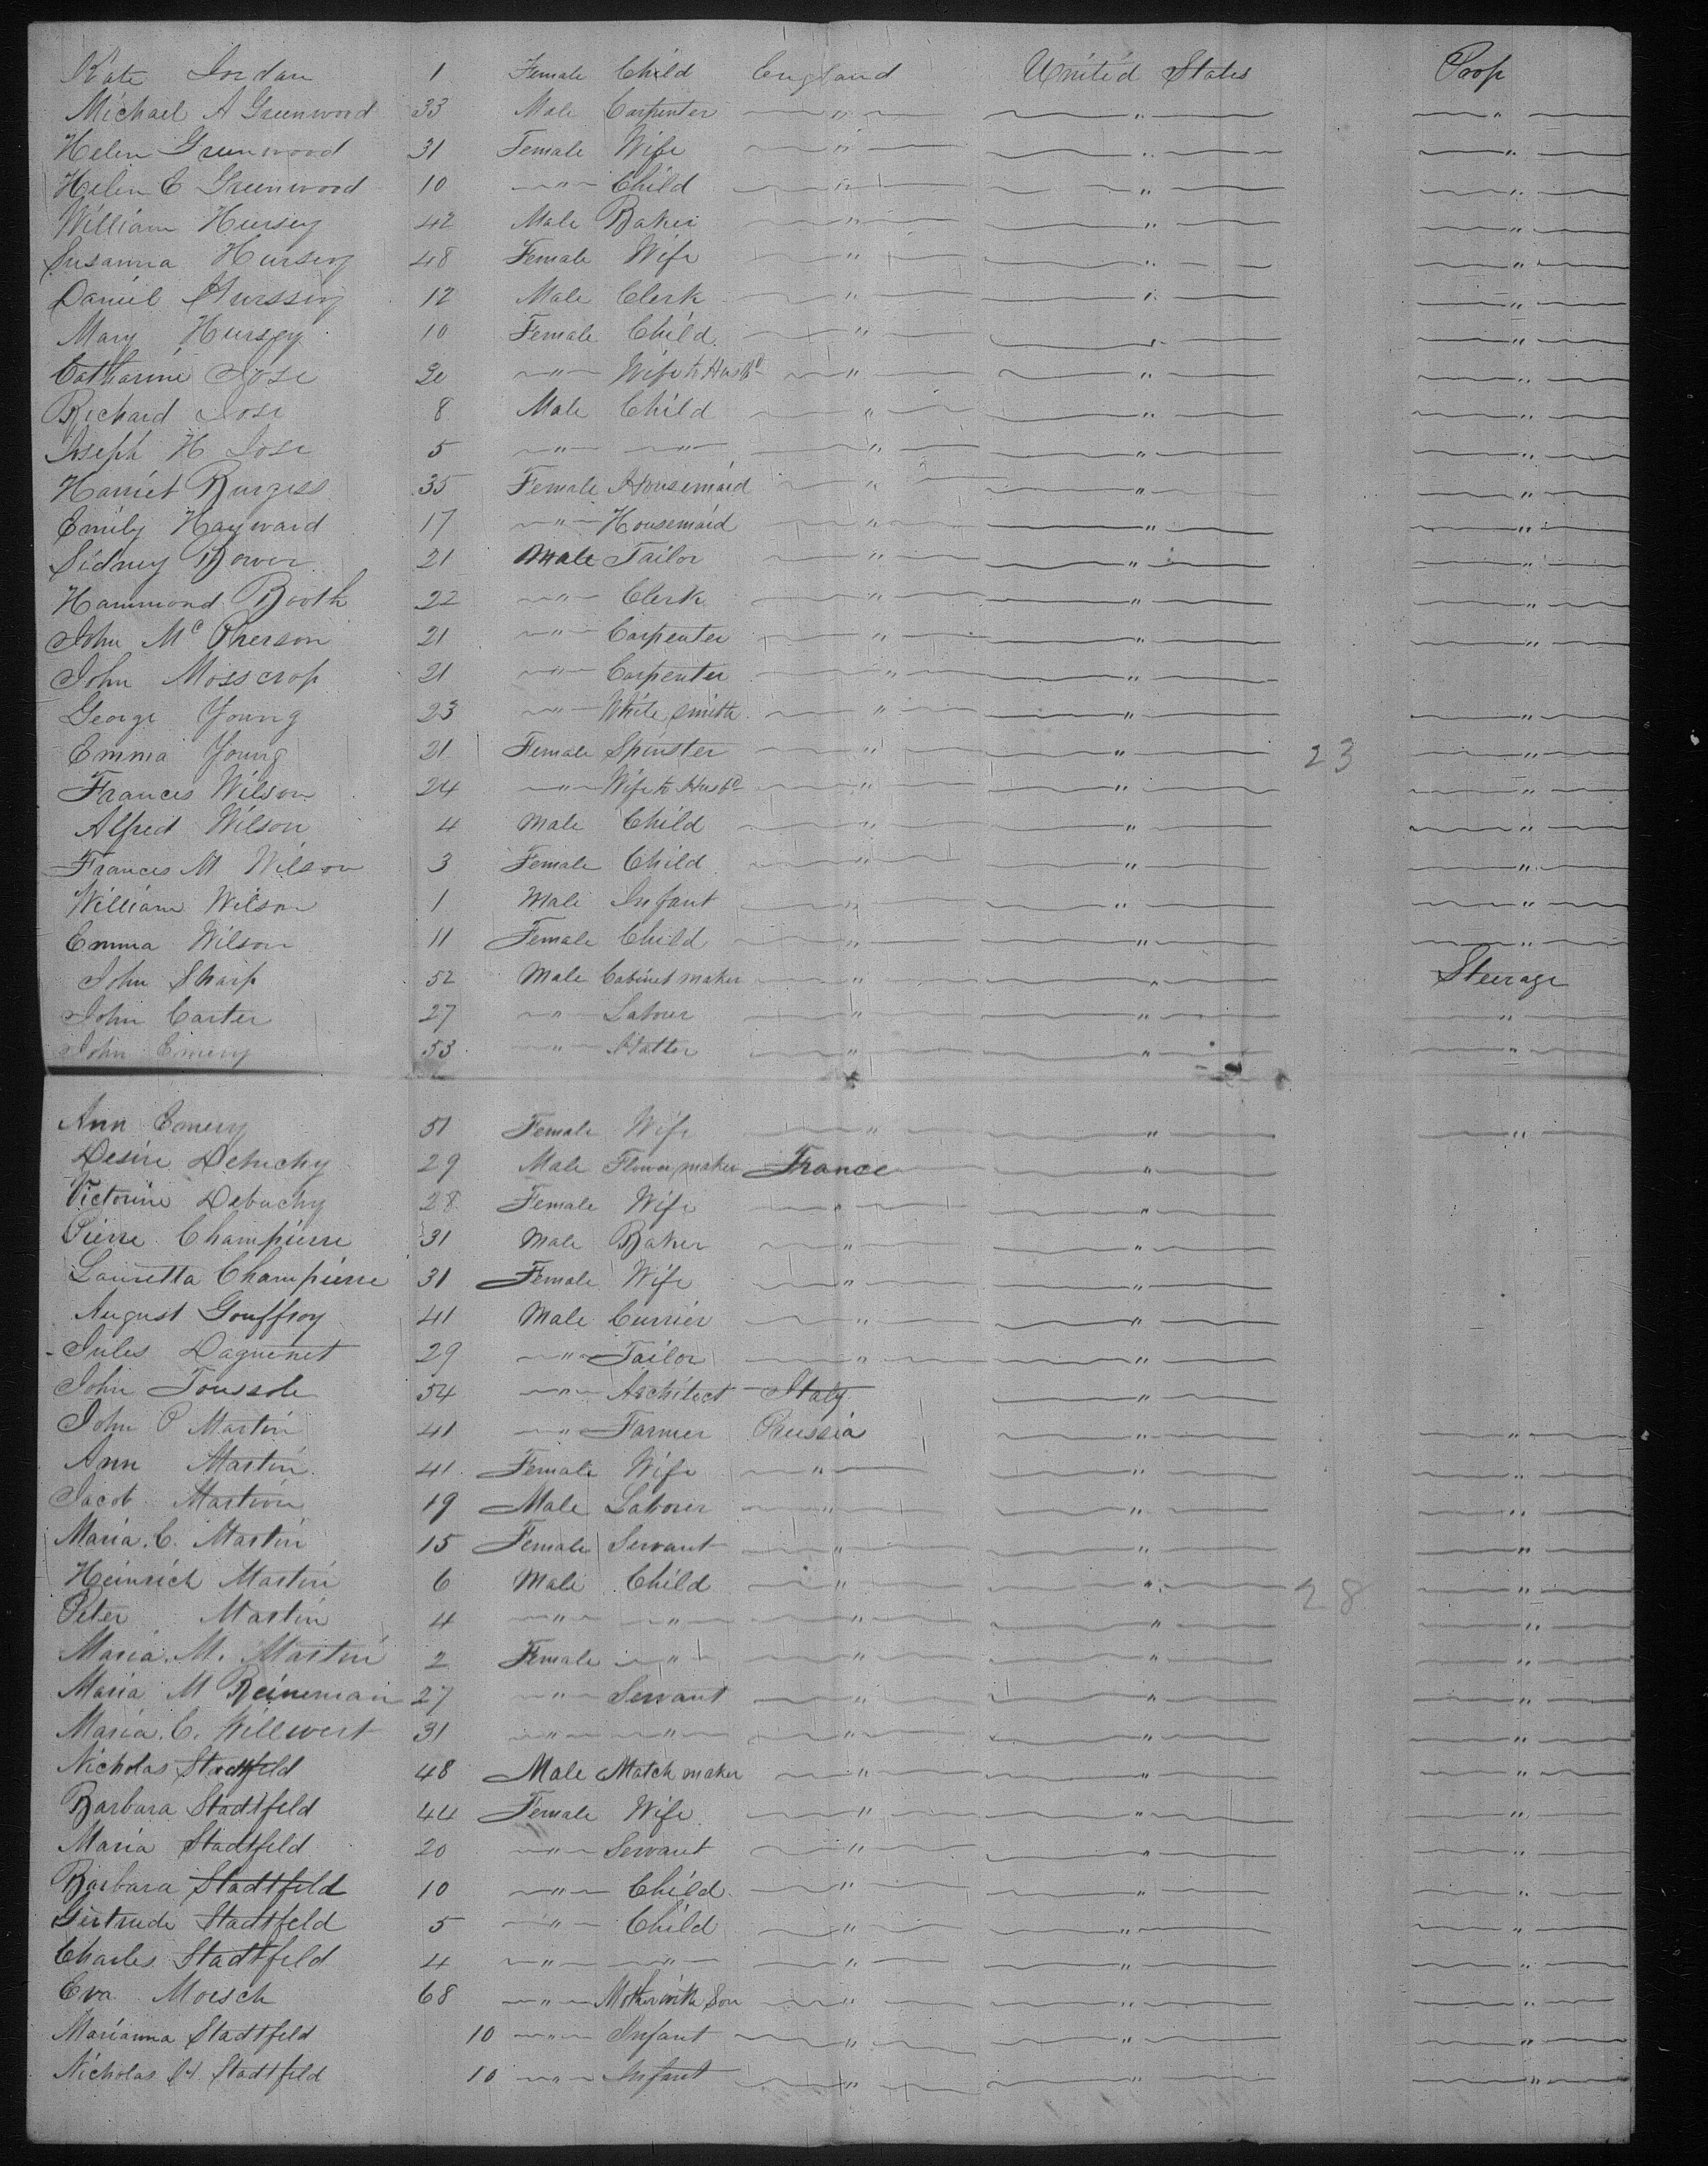 Kate Jordan 1 Female Child England United States Prop
Michael A Greenwood 33 Male Carpenter " " "
Helen Greenwood 31 Female Wife " " "
Helen E Greenwood 10 " Child " " "
William Hursey 42 Male Baker " " "
Susanna Hursey 48 Female Wife " " "
Daniel Hurssey 12 Male Clerk " " "
Mary Hursey 10 Female Child " " "
Catharine Jose 30 " Wife to Husbd " " "
Richard Jose 8 Male Child " " "
Joseph H Jose 5 " " " " "
Harriet Burgess 35 Female Housemaid " " "
Emily Hayward 17 " Housemaid " " "
Sidney Bower 21 Male Tailor " " "
Hammond Booth 22 " Clerk " " "
John Mc Pherson 21 " Carpenter " " "
John Mosscrop 21 " Carpenter " "
George Young 23 " White smith " " "
Emma Young 21 Female Spinster " " 23 "
Frances Wilson 24 " Wife to Husbd " " "
Alfred Wilson 4 Male Child " " "
Frances M Wilson 3 Female Child " " "
William Wilson 1 Male Infant " " "
Emma Wilson 11 Female Child " " "
John Sharp 52 Male Cabinet maker " " Steerage
John Carter 27 " Laborer " " "
John Emery 53 " Hatter " " "
Ann Emery 51 Female Wife " " "
Desire Debuchy 29 Male Flower maker France "
Victorine Debuchy 28 Female Wife " "
Pierre Champierre 31 Male Baker " "
Lauretta Champierre 31 Female Wife " "
August Gouffroy 41 Male Currier " "
Jules Daguenet 29 " Tailor " "
John 54 " Architect Italy "
John P Martin 41 " Farmer Prussia " "
Ann Martin 41 Female Wife " " "
Jacob Martin 19 Male Laborer " " "
Maria C. Martin 15 Female Servant " " "
Heinrich Martin 6 Male Child " " 28 "
Peter Martin 4 " " " " "
Maria M. Martin 2 Female " " " "
Maria M Reineman 27 " Servant " " "
Maria C. Willwert 31 " " " " "
Nicholas Stadtfeld 48 Male Match maker " " "
Barbara Stadtfeld 44 Female Wife " " "
Maria Stadtfeld 20 " Servant " " "
Barbara Stadtfeld 10 " Child " " "
Gertrude Stadtfeld 5 " Child " " "
Charles Stadtfeld 4 " " " " "
Eva Moesch 68 " Mother with Son " " "
Marianna Stadtfeld 10 " Infant " " "
Nicholas H Stadtfeld 10 " Infant " " "